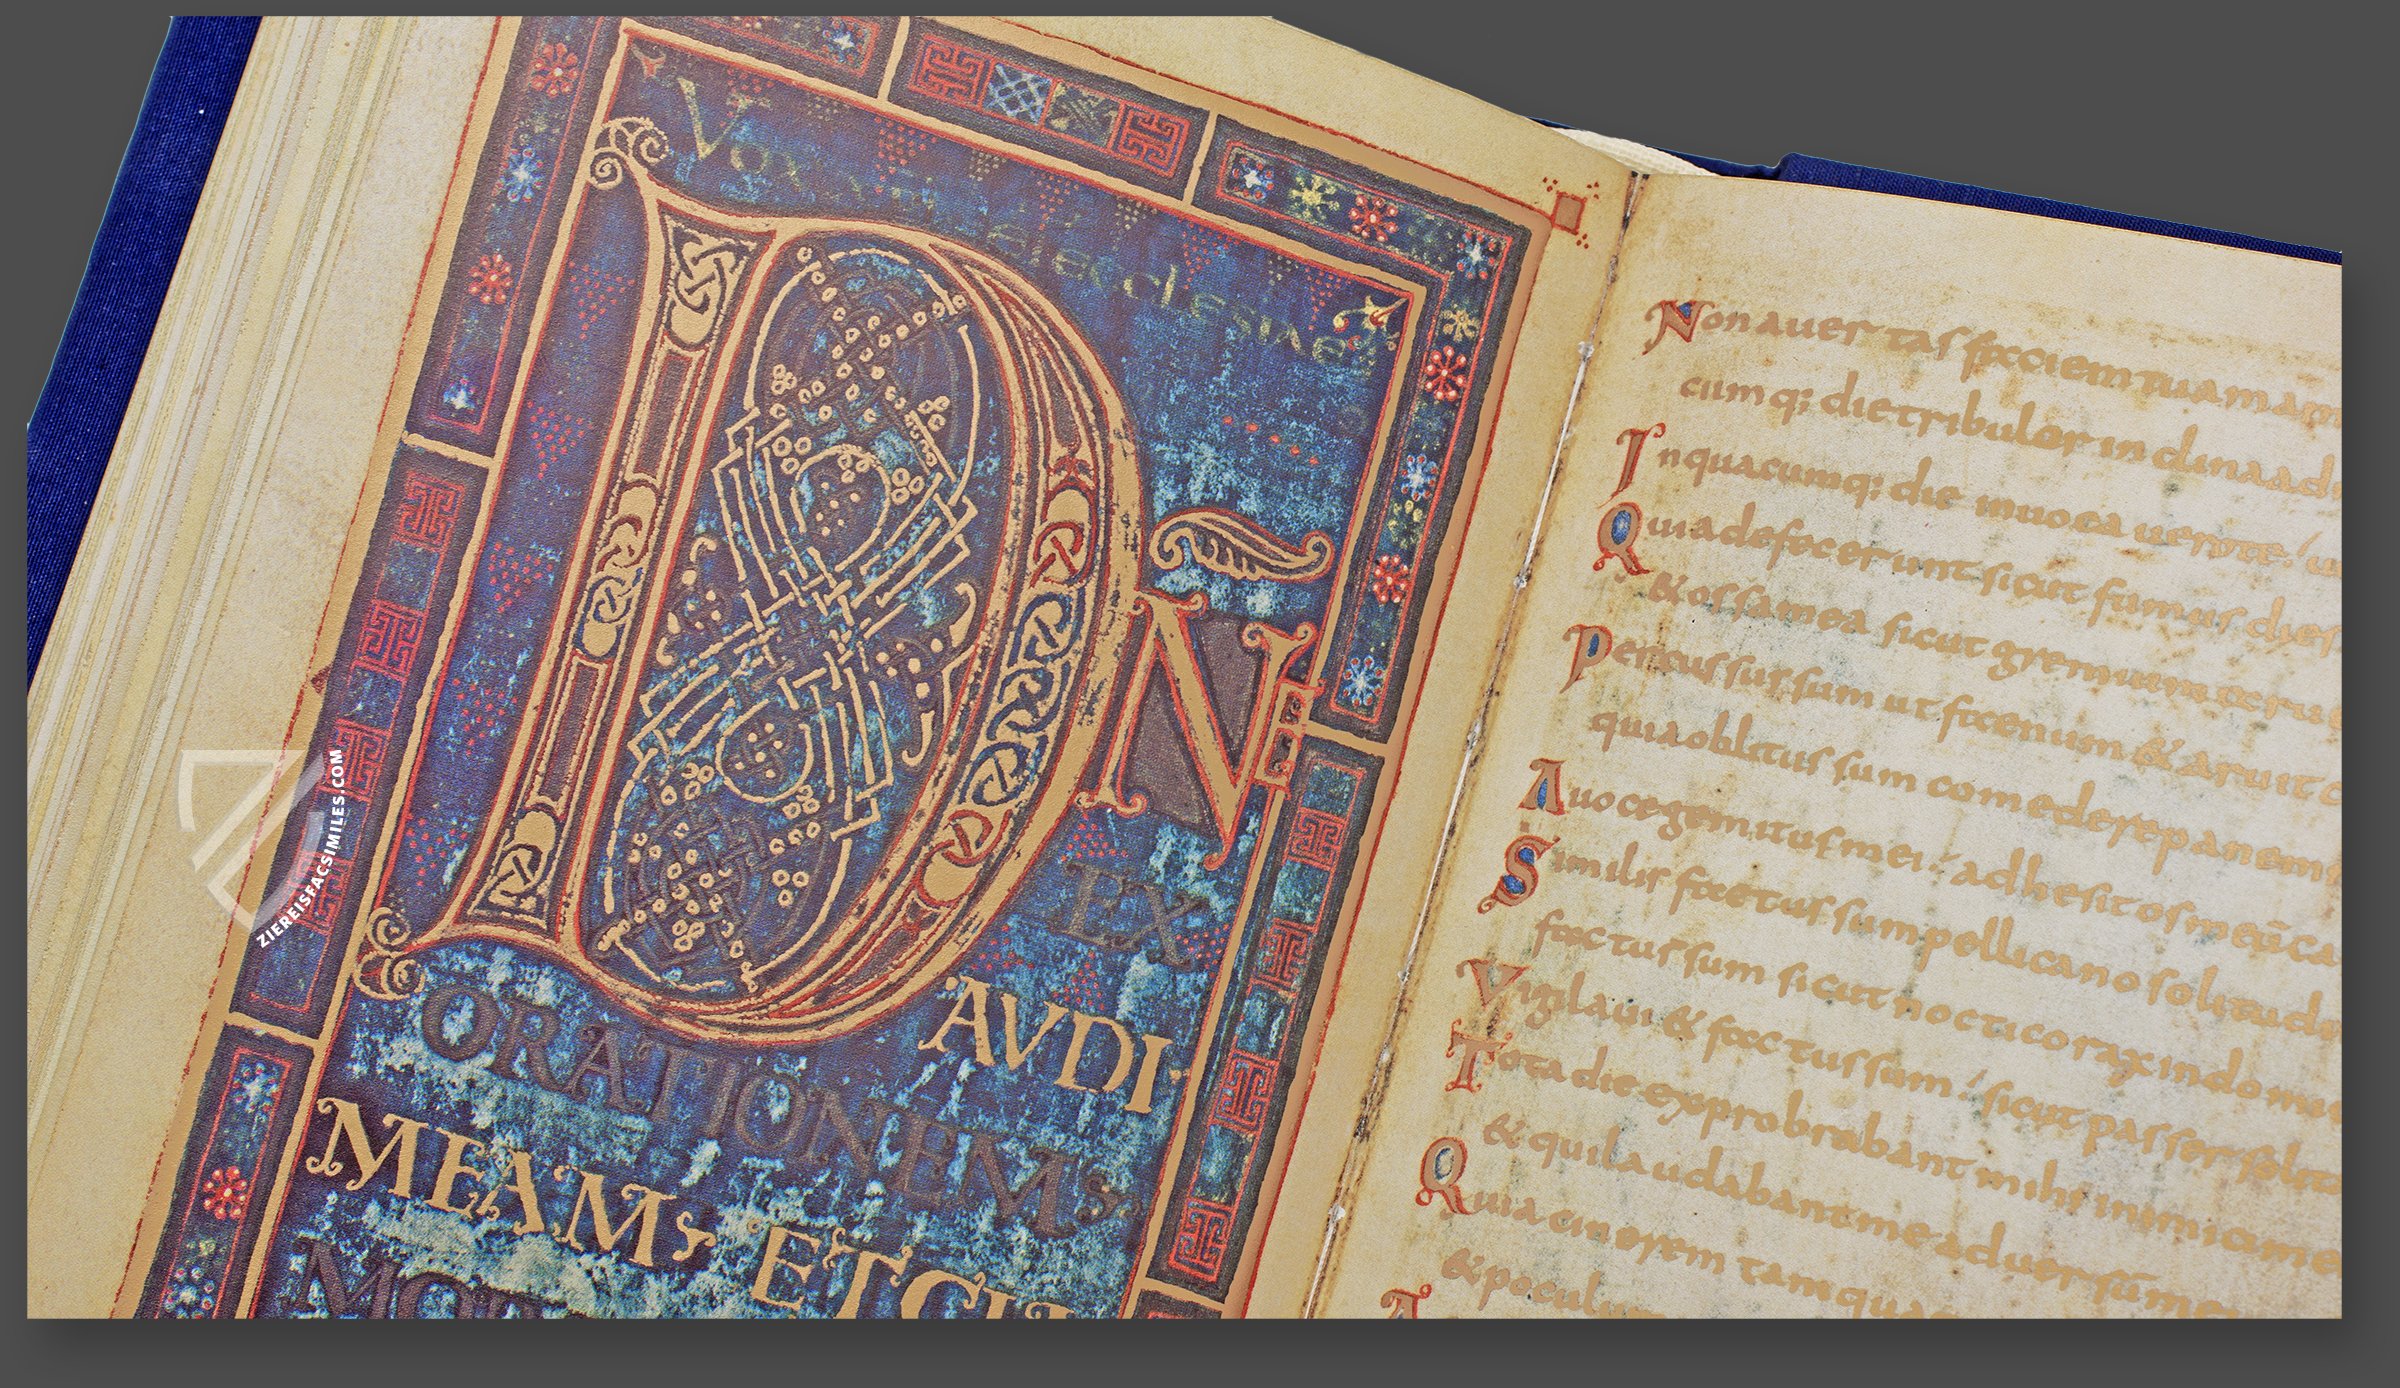 Vox
aecclesiae
DNE
EX
AVDI
ORATIONEM
MEAM; ET CLA
MOR
Non auertas faciem tuam a me
cumq; die tribulor inclina ad
In quacumq; die inuocauero te
Quia defecerunt sicut fumus dies
& ossa mea sicut gremium
Percussus sum ut faenum & aruit
quia oblitus sum comedere panem
A uoce gemitus mei adhesit os meū ca
Similis factus sum pellicano solitudi
factus sum sicut nocticorax in domi
Vigilaui & factus sum sicut passer solita
Tota die exprobrabant mihi inimici me
& qui laudabant me aduersū me
Quia cinerem tamqua
& poculum
A
ZIEREISFACSIMILES.COM